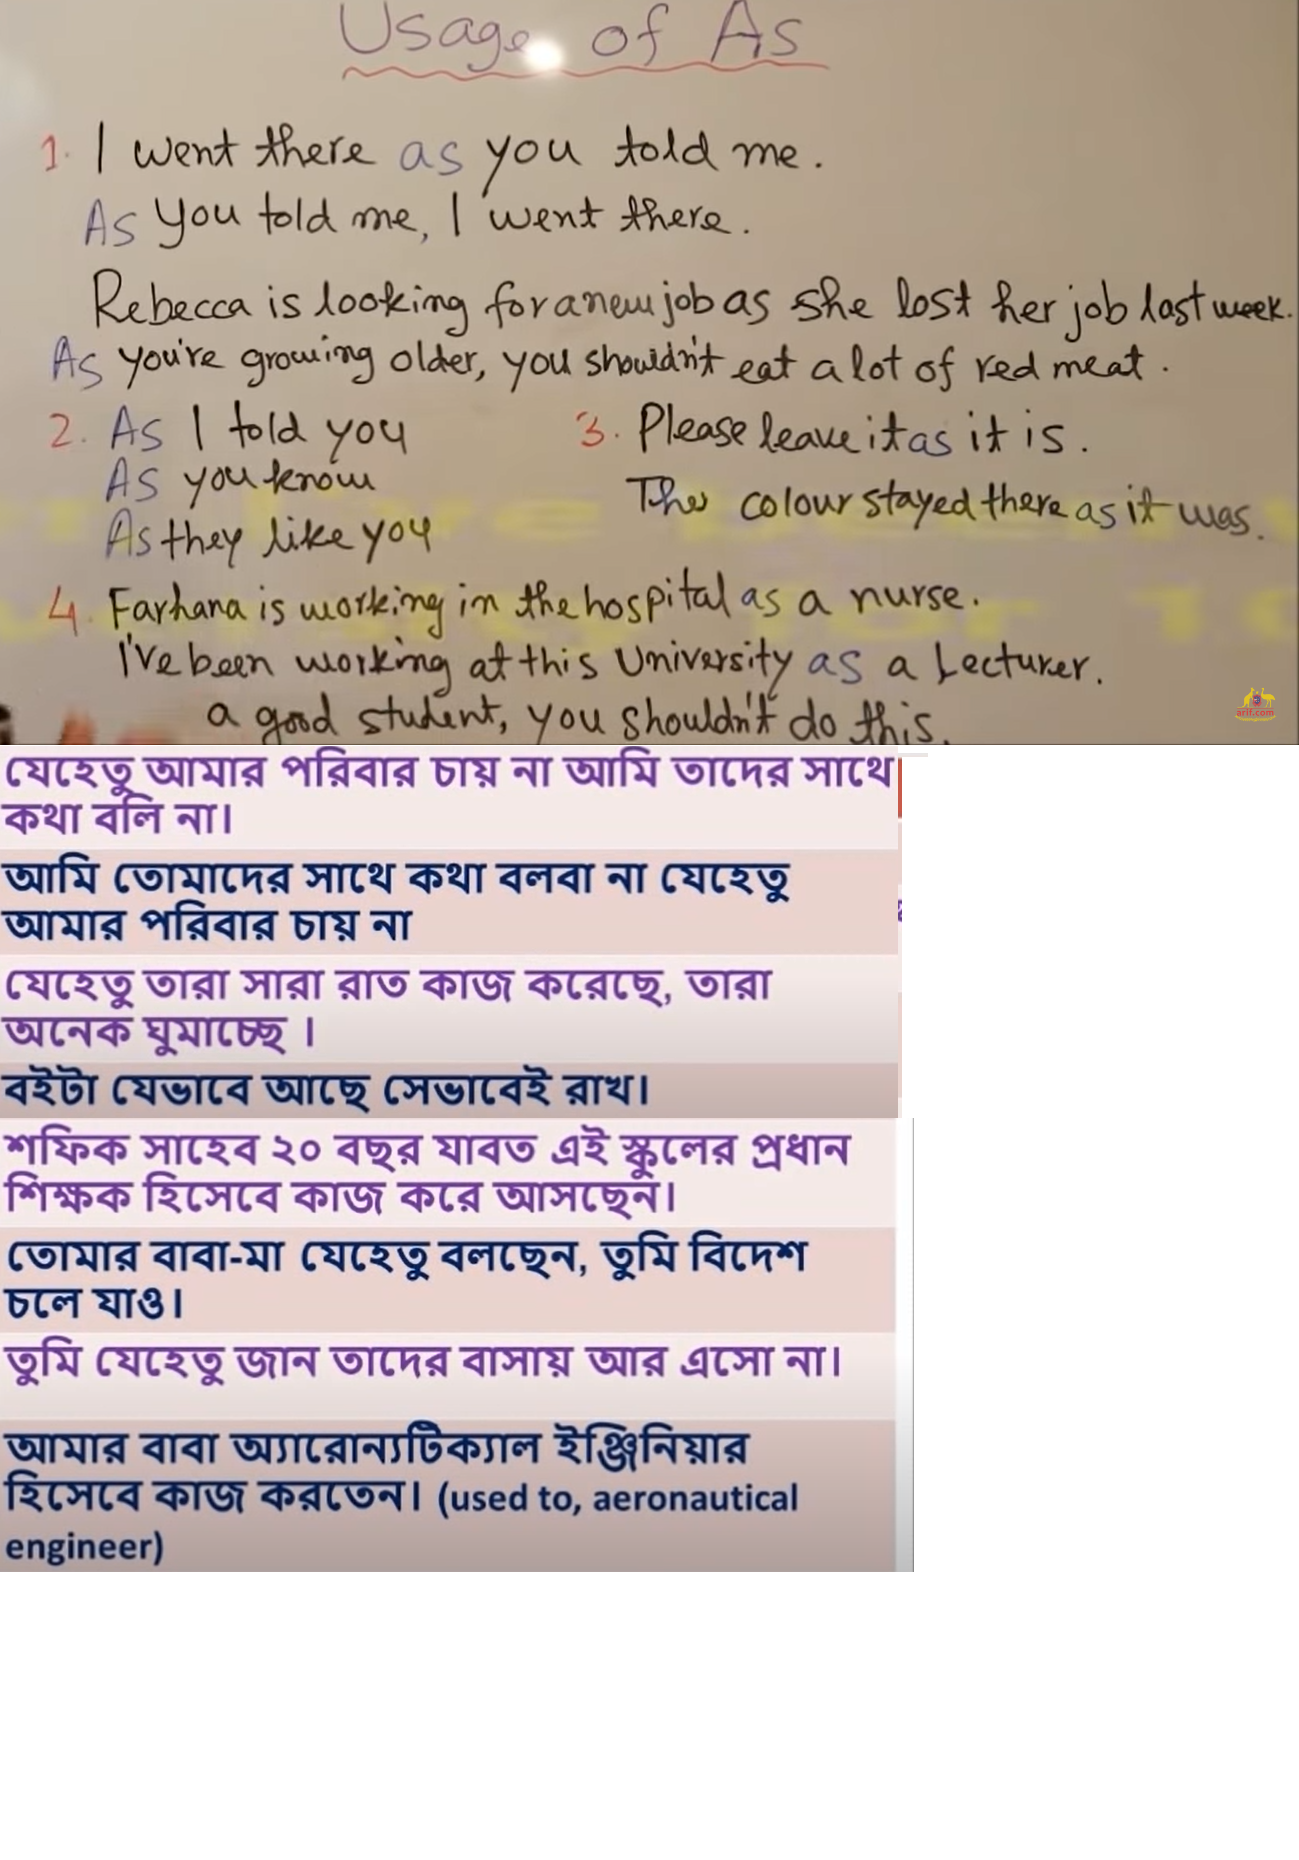 Usage of As
1. I went there as you told me.
As you told me, I went there.
Rebecca is looking for a new job as she lost her job last week.
As you're growing older, you shouldn't eat a lot of red meat.
2. As I told you
As you know
As they like you
3. Please leave it as it is.
The colour stayed there as it was.
4. Farhana is working in the hospital as a nurse.
I've been working at this University as a Lecturer.
a good student, you shouldn't do this.
arif.com
যেহেতু আমার পরিবার চায় না আমি তাদের সাথে
কথা বলি না।
আমি তোমাদের সাথে কথা বলবা না যেহেতু
আমার পরিবার চায় না
যেহেতু তারা সারা রাত কাজ করেছে, তারা
অনেক ঘুমাচ্ছে ।
বইটা যেভাবে আছে সেভাবেই রাখ।
শফিক সাহেব ২০ বছর যাবত এই স্কুলের প্রধান
শিক্ষক হিসেবে কাজ করে আসছেন।
তোমার বাবা-মা যেহেতু বলছেন, তুমি বিদেশ
চলে যাও।
তুমি যেহেতু জান তাদের বাসায় আর এসো না।
আমার বাবা অ্যারোন্যটিক্যাল ইঞ্জিনিয়ার
হিসেবে কাজ করতেন। (used to, aeronautical
engineer)